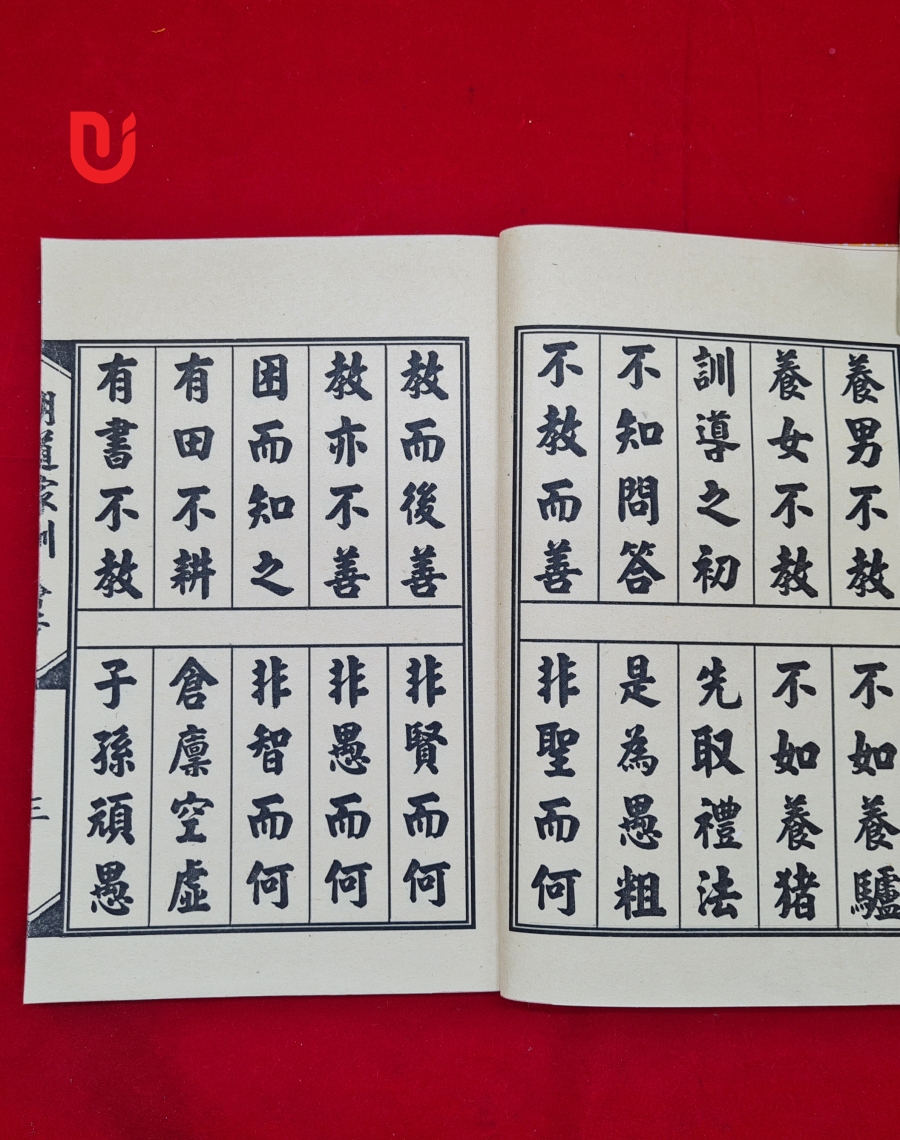 養男不教 不如養驢
養女不教 不如養猪
訓導之初 先取禮法
不知問答 是為愚粗
不教而善 非聖而何
教而後善 非賢而何
教亦不善 非愚而何
困而知之 非智而何
有田不耕 倉廩空虛
有書不教 子孫頑愚
明道家訓